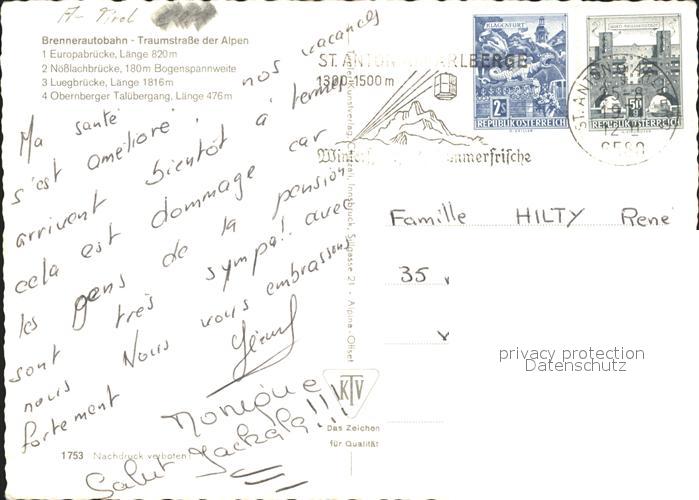 A- Tirol
Brennerautobahn - Traumstraße der Alpen
1 Europabrücke, Länge 820 m
2 Nößlachbrücke, 180 m Bogenspannweite
3 Luegbrücke, Länge 1816 m
4 Obernberger Talübergang, Länge 476 m
Ma santé
s'est améliore, nos vacances
arrivent bientôt à terme,
cela est dommage car
les gens de la pension
sont très sympa! avec
nous Nous vous embrassons
fortement
Gérard
Monique
Salut Jackala!!!
1753 Nachdruck verboten!
Innsbruck, Sillgasse 21 - Alpina-Offset
KTV
Das Zeichen
für Qualität
ST. ANTON AM ARLBERG
1300-1500 m
KLAGENFURT
2 S
REPUBLIK ÖSTERREICH
50
REPUBLIK ÖSTERREICH
ST. ANTON
6580
Famille HILTY René
35
privacy protection
Datenschutz